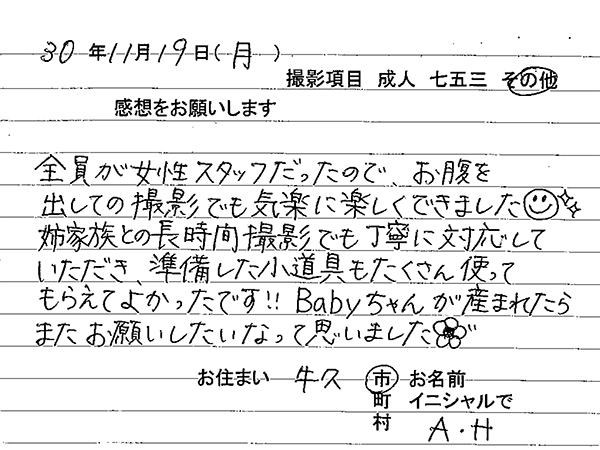 30年11月19日(月)
撮影項目 成人 七五三 その他
感想をお願いします
全員が女性スタッフだったので、お腹を
出しての撮影でも気楽に楽しくできました
姉家族との長時間撮影でも丁寧に対応して
いただき、準備した小道具もたくさん使って
もらえてよかったです!! Babyちゃんが産まれたら
またお願いしたいなって思いました
お住まい 牛久 市 お名前
町 イニシャルで
村 A・H